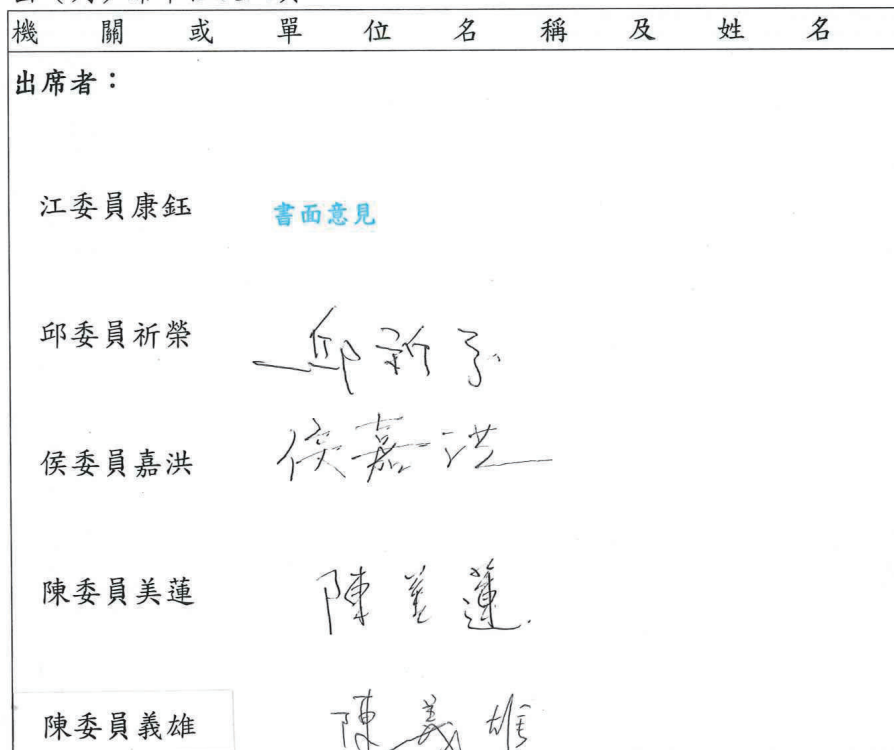 機關或單位名稱及姓名
出席者：
江委員康鈺 書面意見
邱委員祈榮 邱祈榮
侯委員嘉洪 侯嘉洪
陳委員美蓮 陳美蓮
陳委員義雄 陳義雄